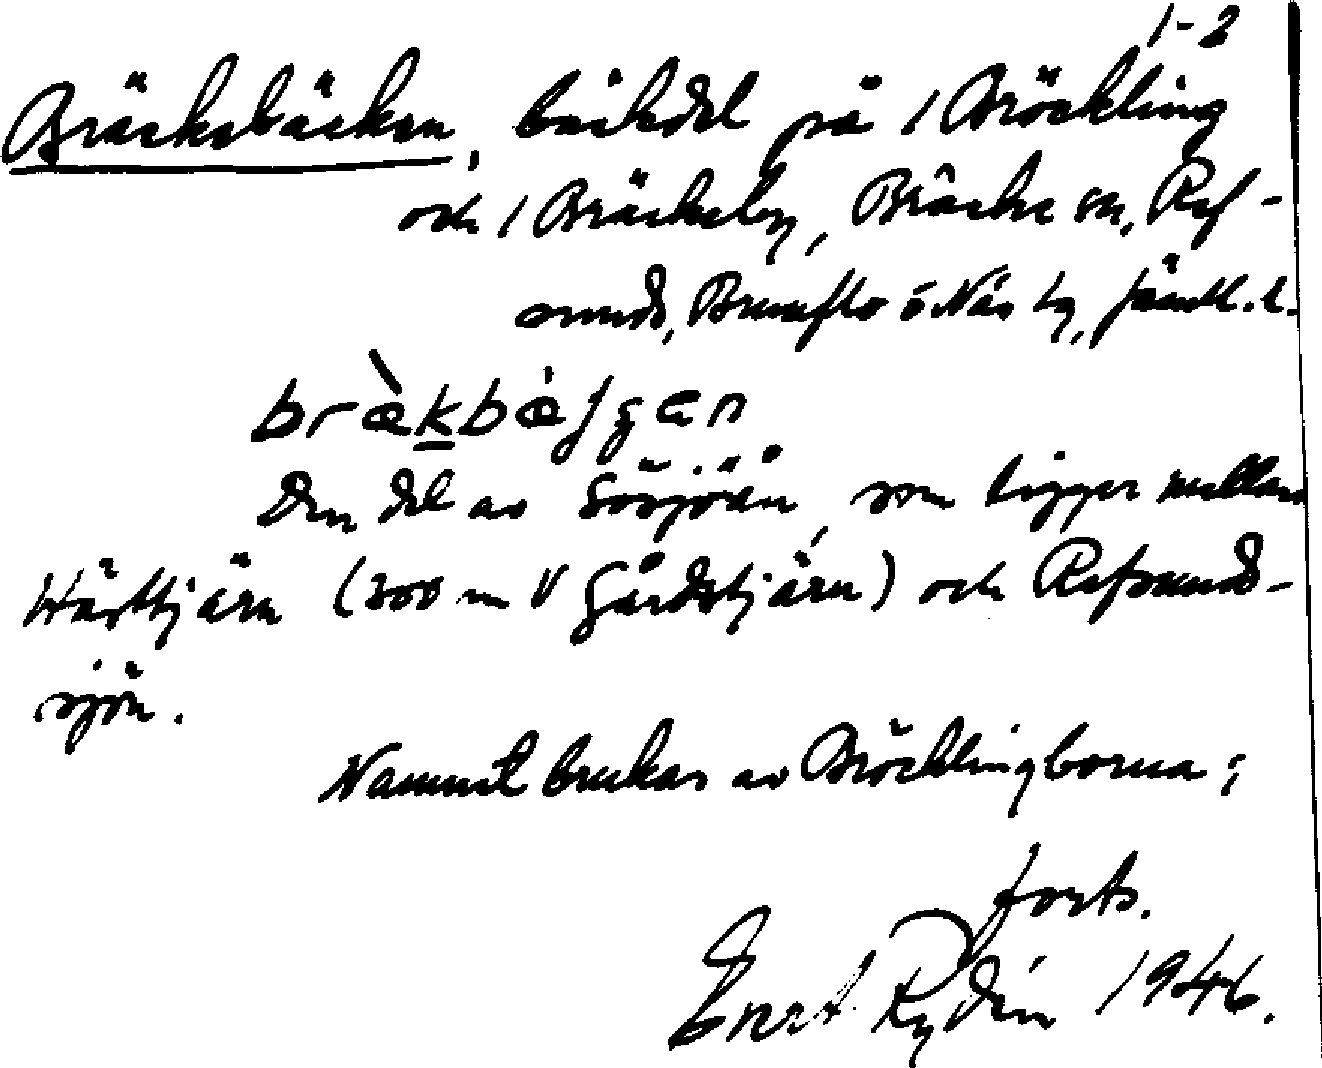 1-2
Bräckebäcken, bäckdel på 1 Bröckling
och 1 Bräckeby, Bräcke sn, Ref-
sunds, Brunflo o Näs tg, Jämtl. l.
brækbæʃgæn
Den del av Sösjöån, som ligger mellan
Västtjärn (200 m V Gårdstjärn) och Refsunds-
sjön.
Namnet brukas av Bröcklingborna;
forts.
Evert Rydén 1946.